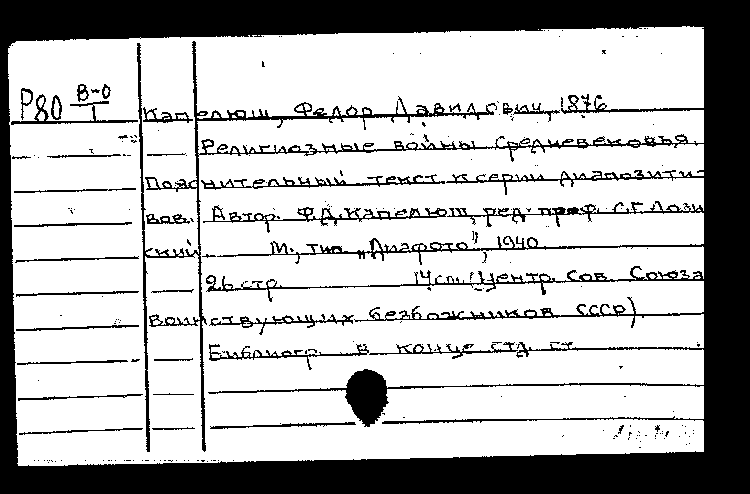 Р80 В-0/1 Капелюш, Федор Давидович, 1876
Религиозные войны средневековья.
Пояснительный текст к серии диапозити-
вов. Автор Ф.Д. Капелюш, ред. проф. С.Г. Лози
ский М., тип. „Диафото", 1940
26 стр. 14 см. (Центр. Сов. Союза
воинствующих безбожников СССР)
Библиогр. в конце отд. ст.